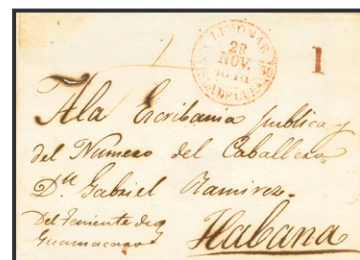 LIMONAR
28
NOV.
1
A la Escribania publica y
del Numero del Caballero
Dn Gabriel Ramirez.
Del Teniente de
Guamacaro
Habana